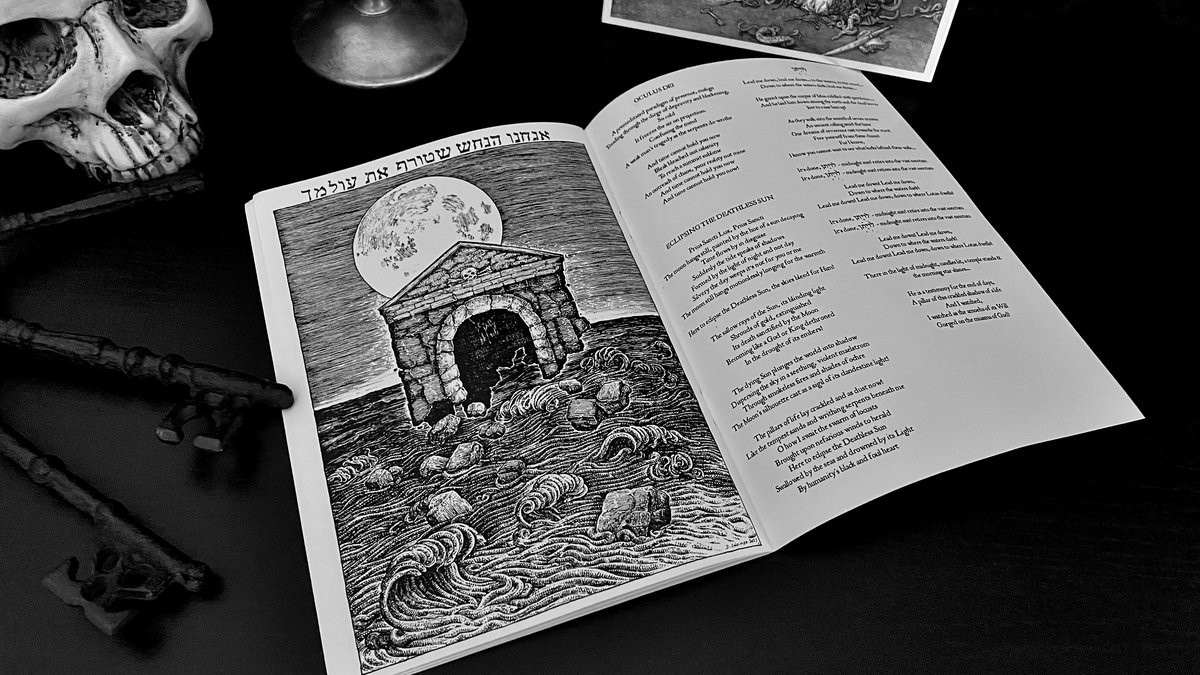 אנחנו הנחש שטורף את עולמך
OCULUS DEI
A premeditated paradigm of presence, malign
Finding through the dirge of depravity and blackening,
So cold
It freezes the air on projection,
Confusing the mind
A weak man's tragedy as the serpents do writhe
And time cannot hold you now
Bleak bleached out calamity
To reach a summit sublime
An outreach of chaos, your reality not mine
And time cannot hold you now
And time cannot hold you now!
ECLIPSING THE DEATHLESS SUN
Prius Sancti Lux, Prius Sancti
The moon hangs still, painted by the hue of a sun decaying
Time flows by in disguise
Suddenly the tide speaks of shadows
Formed by the light of night and not day
Silvery the day weeps it's not for you or me
The moon still hangs motionlessly longing for the warmth
Here to eclipse the Deathless Sun, the skies bleed for Him!
The sallow rays of the Sun, its blinding light
Shrouds of gold, extinguished
Its death sanctified by the Moon
Becoming like a God or King dethroned
In the drought of its embers!
The dying Sun plunges the world into shadow
Dispersing the sky in a seething, violent maelstrom
Through smokeless fires and shades of ochre
The Moon's silhouette cast as a sigil of its dandestine light!
The pillars of life lay crackled and as dust now!
Like the tempest sands and writhing serpents beneath me
O how I await the swarm of locusts
Brought upon nefarious winds to herald
Here to eclipse the Deathless Sun
Swallowed by the seas and drowned by its Light
By humanity's black and foul heart
Lead me down, lead me down to the waters
Down to where the waters dark, lead me down
He gazed upon the
And he laid him down among the earth and the
As they walk into the mouth of seven
An ancient calling amid the
Our dreams of reverence cast towards the
Free yourself from these
For I know,
I know you cannot want to see what lurks behind those walls...
It's done, - midnight sun! retires into the vast sanctum
It's done, - midnight sun! retires into the vast sanctum
Lead me down! Lead me down,
Down to where the waters dark!
Lead me down! Lead me down, down to where Lotan dwells!
It's done, - midnight sun! retires into the vast sanctum
It's done, - midnight sun! retires into the vast sanctum
Lead me down! Lead me down,
Down to where the waters dark!
Lead me down! Lead me down, down to where Lotan dwells!
There in the light of midnight, candles lit, a temple stands &
the morning star shines...
He is a testimony for the end of days,
A pillar of this crackled shadow of life
And I watched,
I watched as the smooths of its Will
Gorged on the miasma of God!